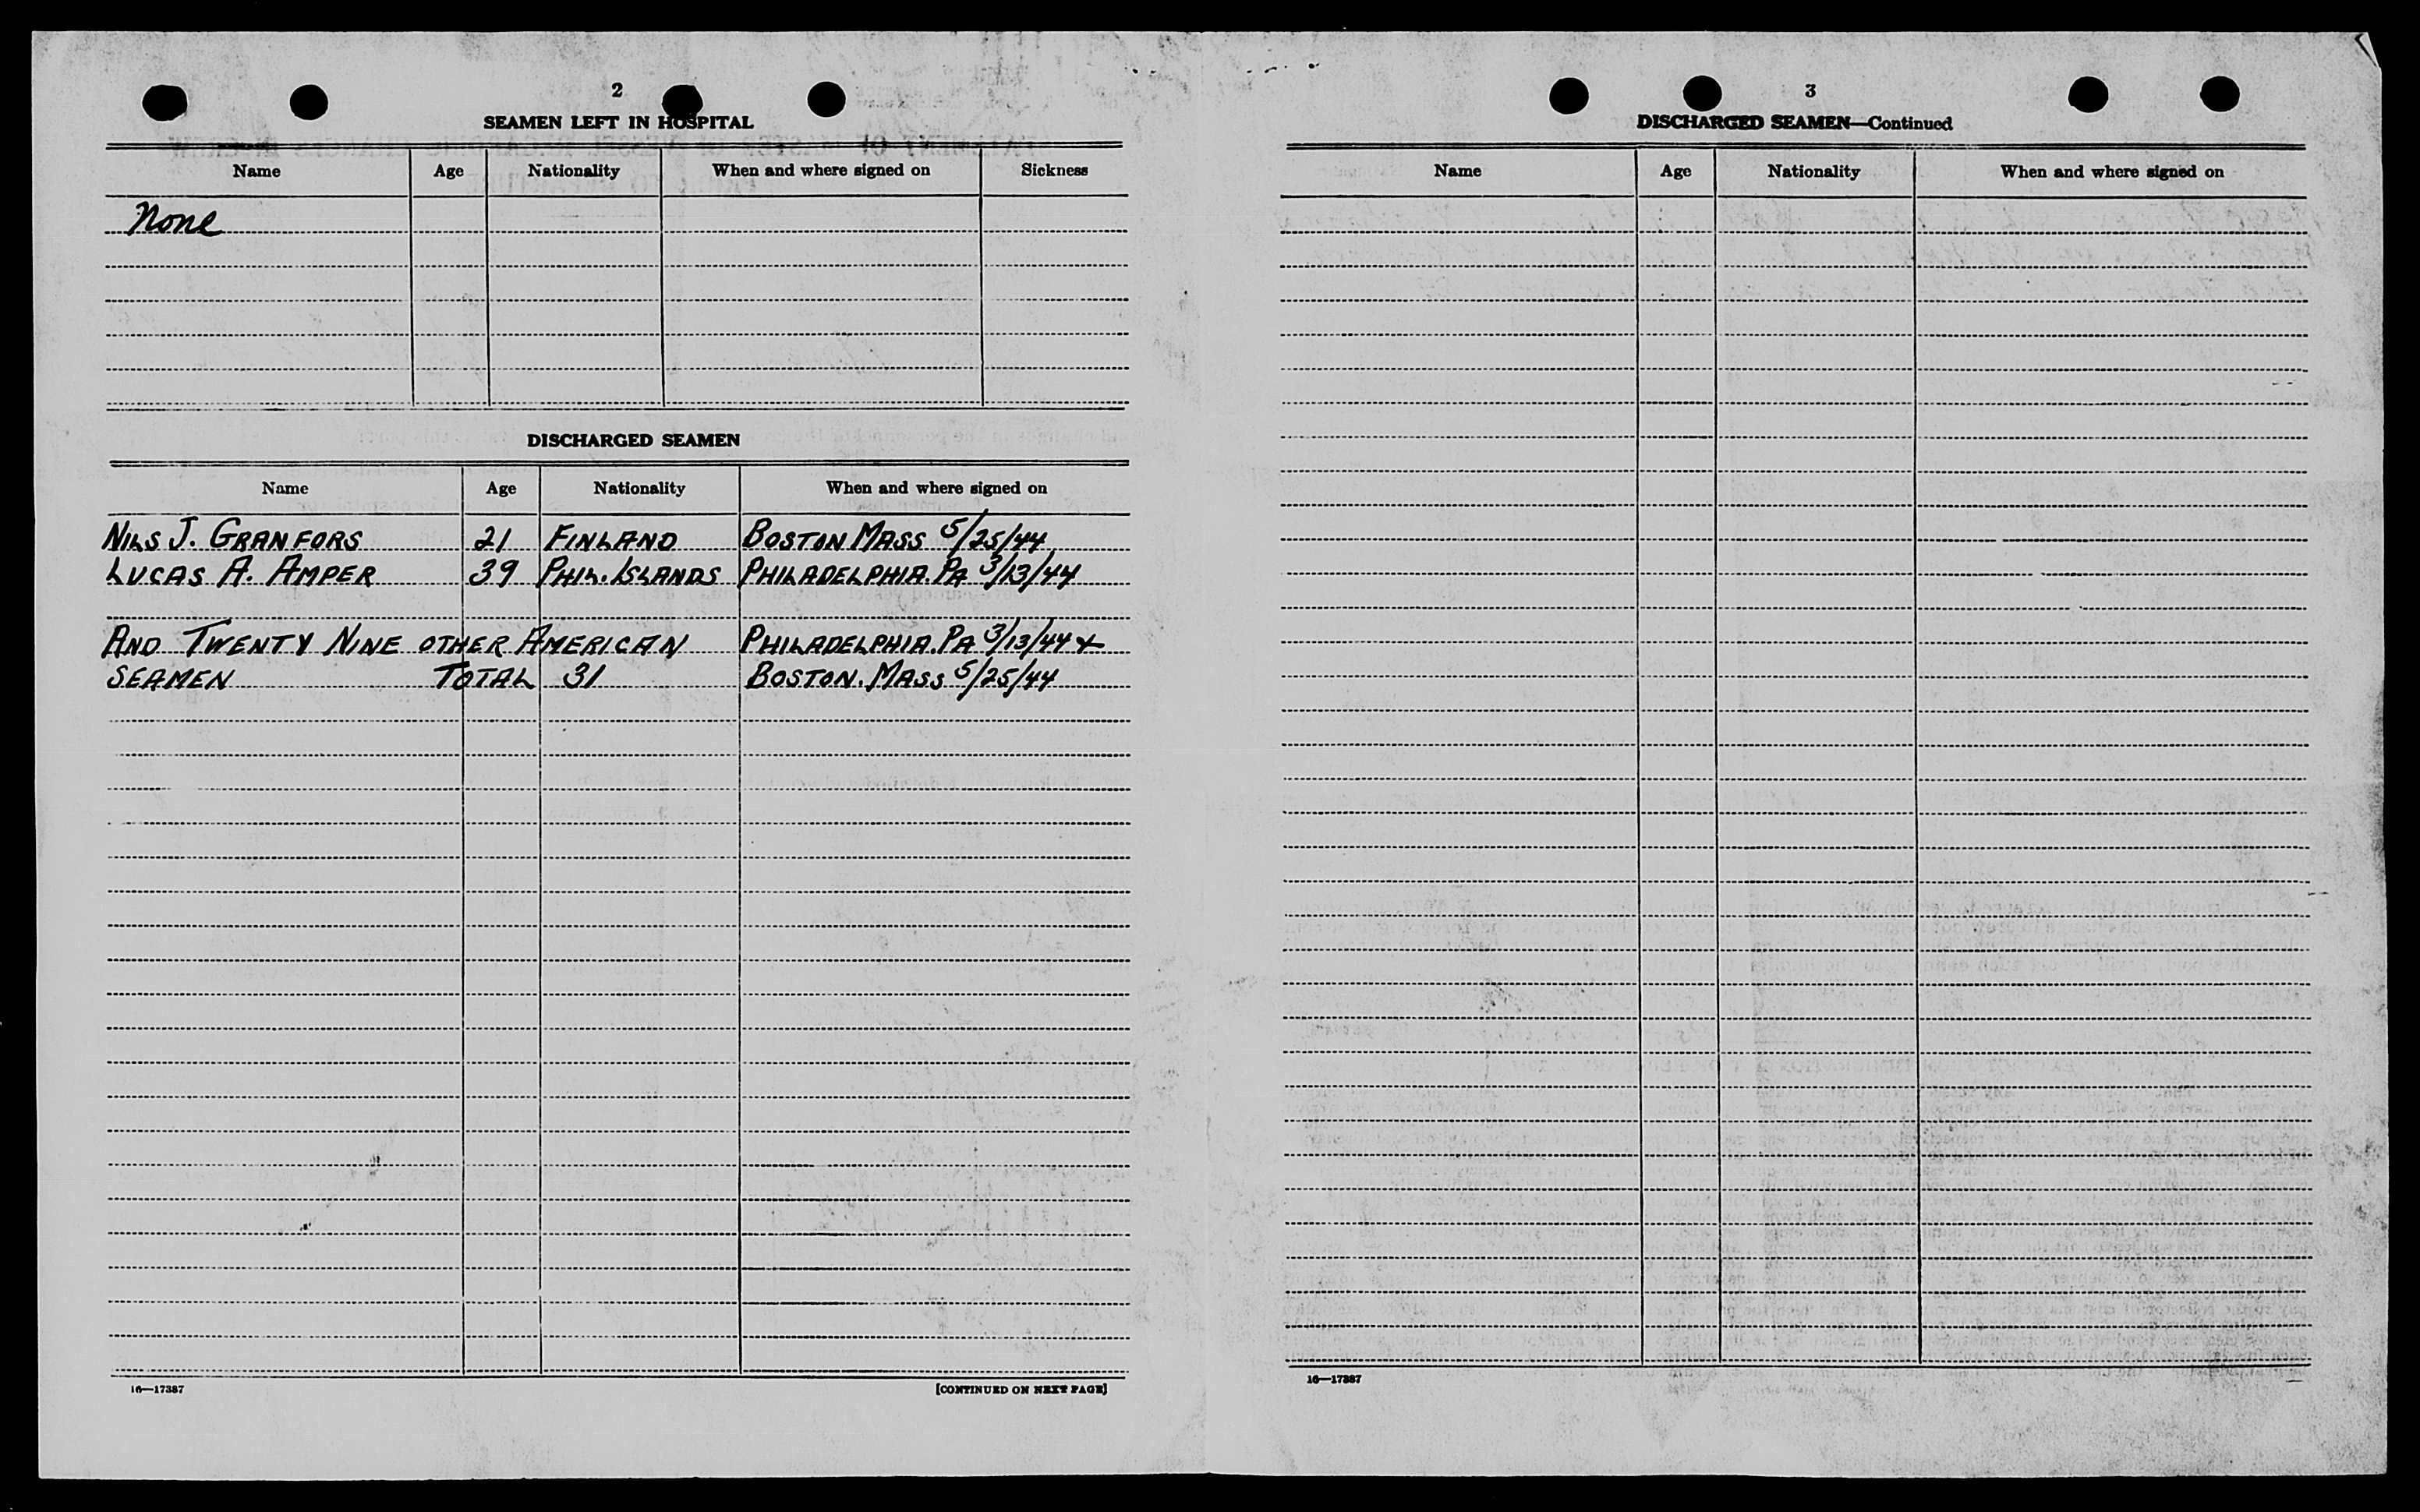 2
SEAMEN LEFT IN HOSPITAL
Name Age Nationality When and where signed on Sickness
None
DISCHARGED SEAMEN
Name Age Nationality When and where signed on
NILS J. GRANFORS 21 FINLAND BOSTON MASS 5/25/44
LUCAS A. AMPER 39 PHIL. ISLANDS PHILADELPHIA. PA 3/13/44
AND TWENTY NINE OTHER AMERICAN PHILADELPHIA. PA 3/13/44 &
SEAMEN TOTAL 31 BOSTON. MASS 5/25/44
16—17387 [CONTINUED ON NEXT PAGE]
3
DISCHARGED SEAMEN—Continued
Name Age Nationality When and where signed on
16—17387